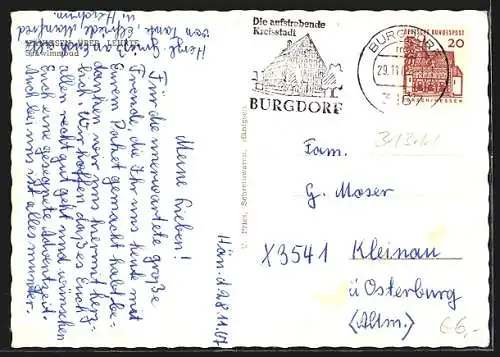 Die aufstrebende
Kreisstadt
BURGDORF
BURGDORF
29.11.
DEUTSCHE BUNDESPOST
20
LORSCH/HESSEN
Fam.
G. Moser
X3541 Kleinau
ü Osterburg
(Altm.)
€6,-
Hän. d 28.11.67
Meine Lieben!
Für die unerwartete große
Freude, die Ihr uns heute mit
Eurem Paket gemacht habt be-
danken wir uns hiermit herz-
lich. Wir hoffen, daß es Euch
allen recht gut geht und wünschen
Euch eine gesegnete Adventszeit.
Auch bei uns ist alles munter.
Herzl. Grüße an Euch alle
von Tante Elfriede, Manfred
u. Hardtmu.
Schwimmbad